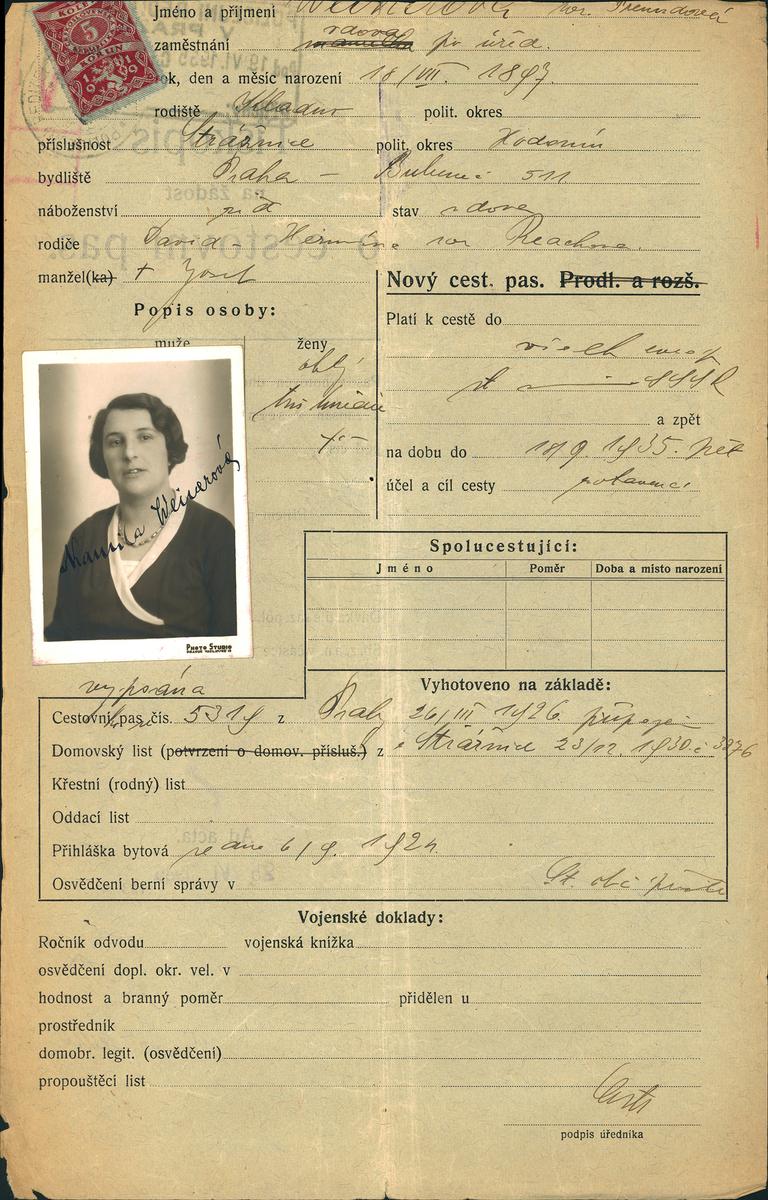 KOLEK
5
KORUN
1919
Jméno a příjmení
roz.
vdova
zaměstnání po úřed.
rok, den a měsíc narození 18/VII. 1897.
rodiště Kladno polit. okres
příslušnost Strážnice polit. okres Hodonín
bydliště Praha – Bubeneč 511
náboženství žid stav vdova
rodiče David – Hermína roz
manžel(ka) + Josef
Nový cest. pas. Prodl. a rozš.
Popis osoby:
Platí k cestě do
muže ženy
všech evrop
oblý
st SSSR
a zpět
na dobu do 18/9 1935. pět
účel a cíl cesty zotavení
Kamila Weinerová
PHOTO STUDIO
Spolucestující:
Jméno Poměr Doba a místo narození
Vyhotoveno na základě:
vypsána
Cestovní pas čís. 5319 z Prahy 26/III 1926.
Domovský list (potvrzení o domov. přísluš.) z Strážnice 23/12. 1930 č 3876
Křestní (rodný) list
Oddací list
Přihláška bytová ze dne 6/9. 192
Osvědčení berní správy v St. obč
Vojenské doklady:
Ročník odvodu vojenská knížka
osvědčení dopl. okr. vel. v
hodnost a branný poměr přidělen u
prostředník
domobr. legit. (osvědčení)
propouštěcí list
podpis úředníka